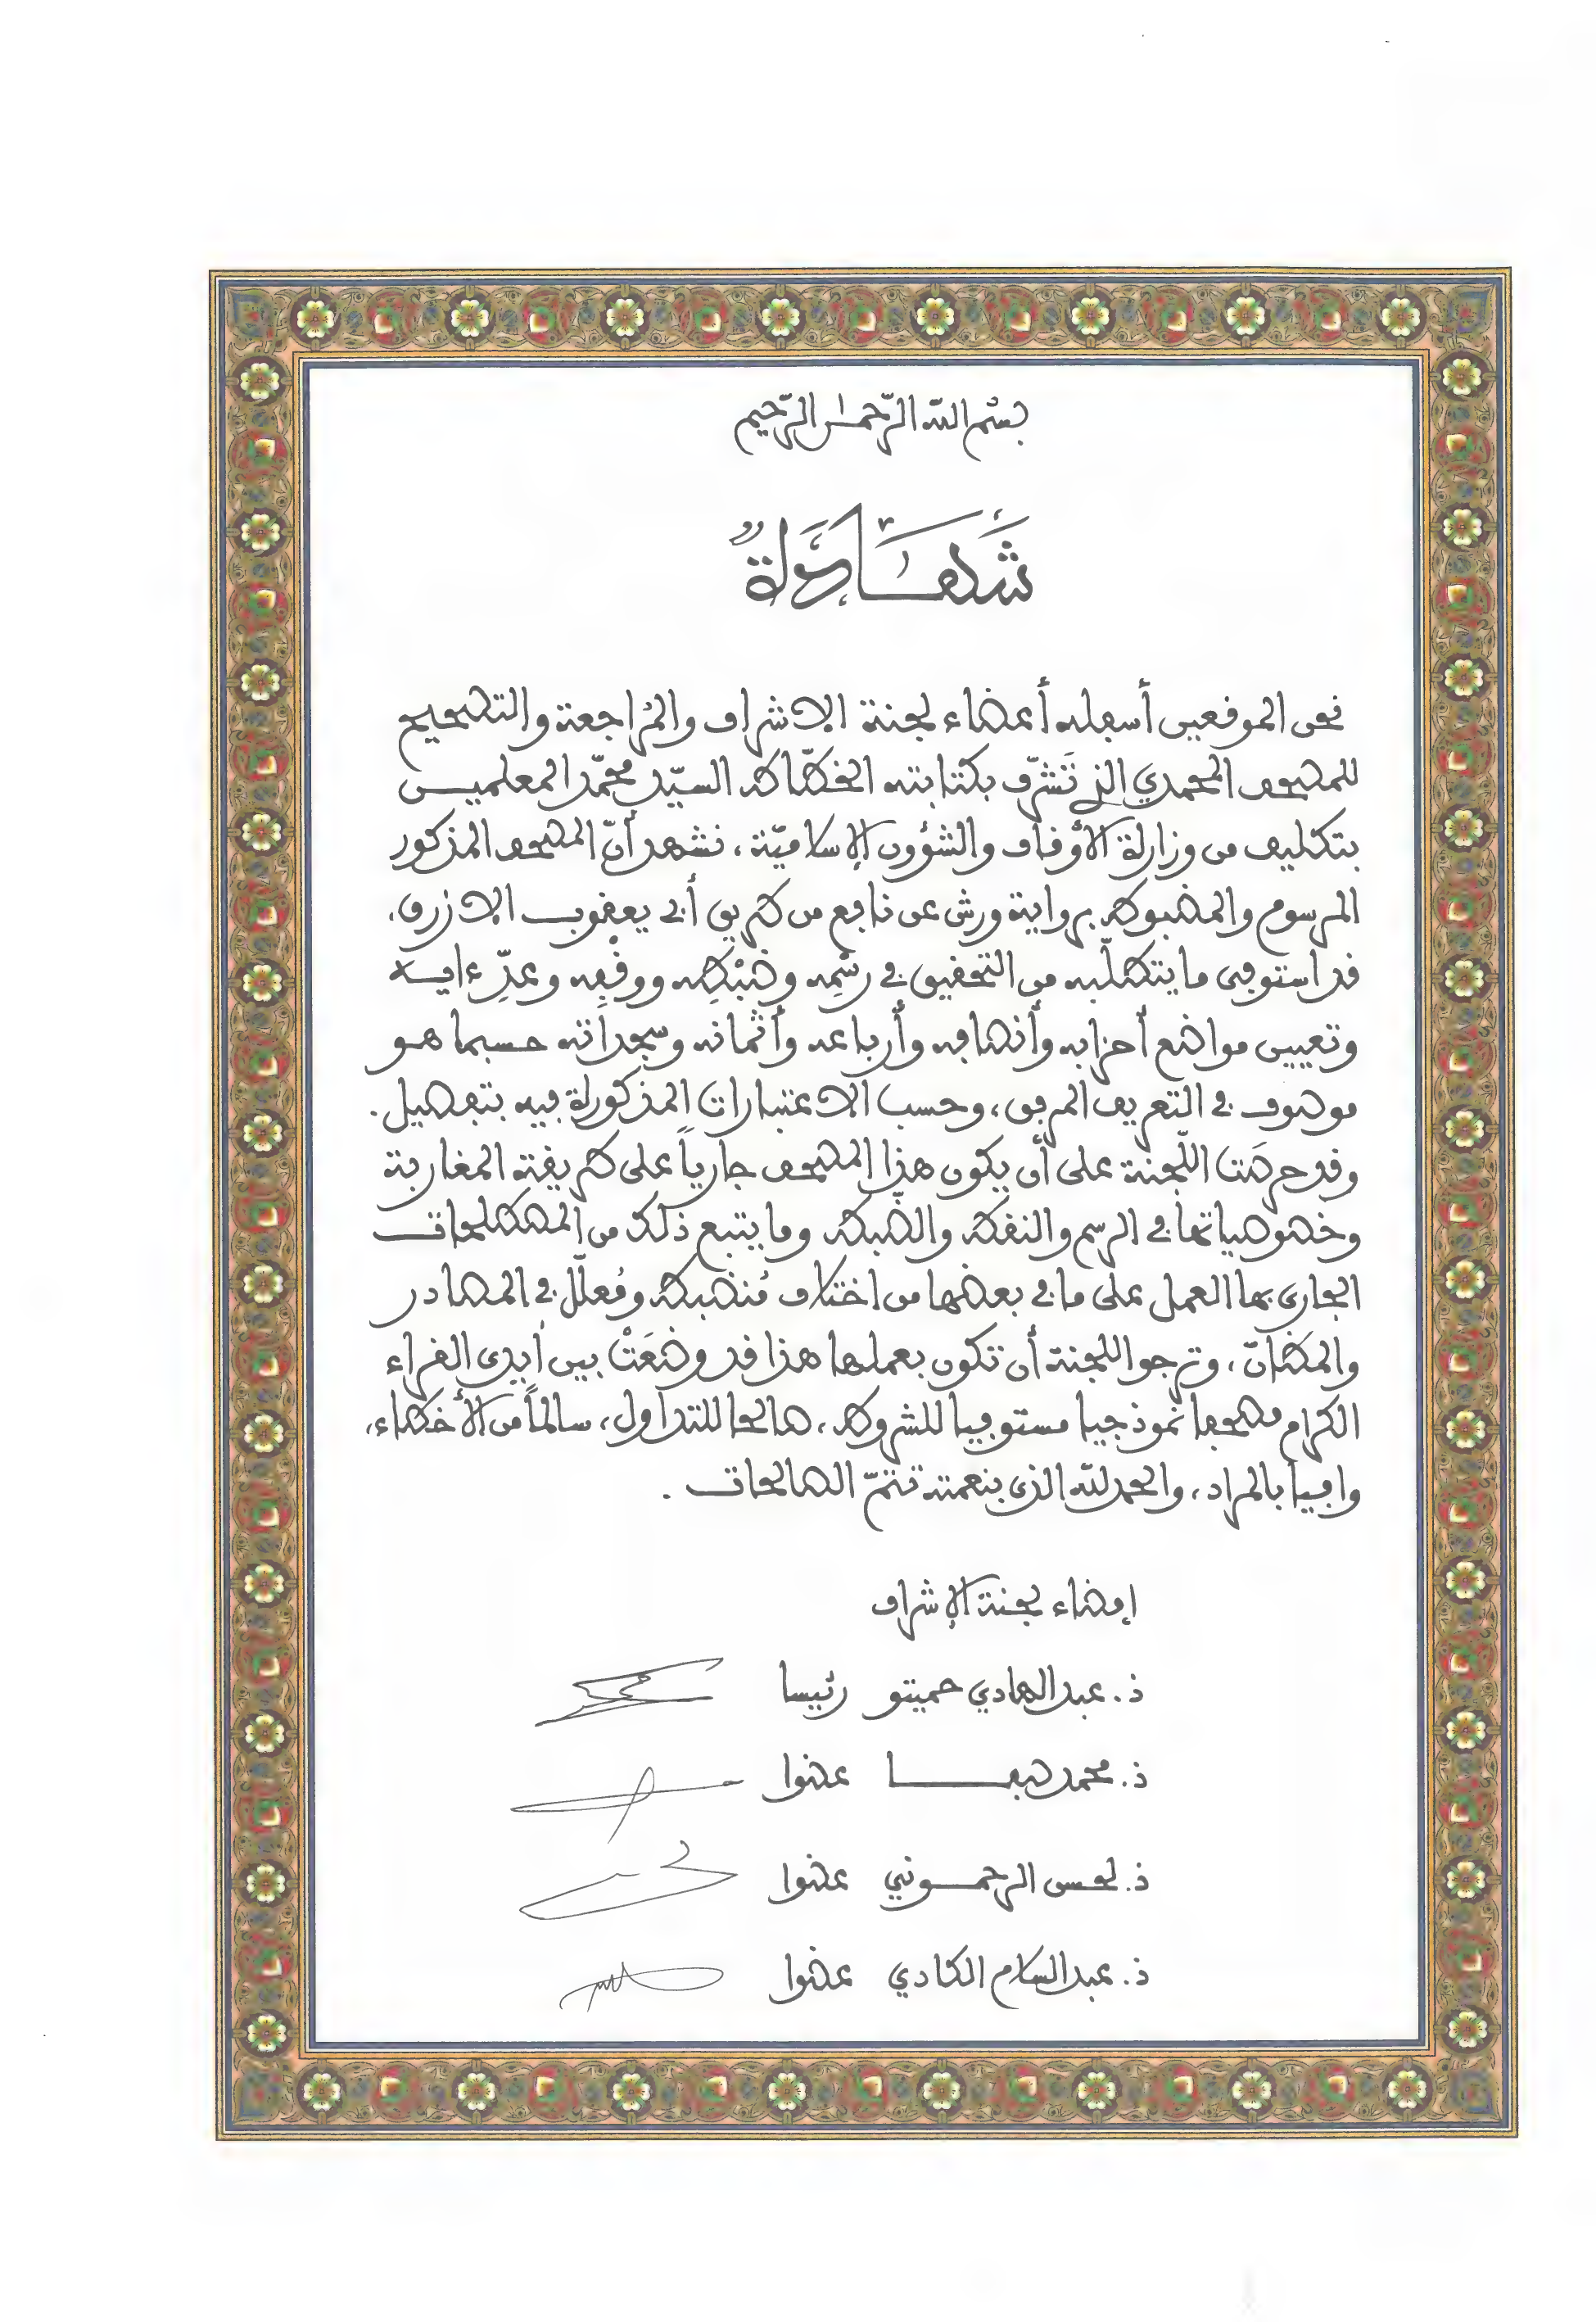 بسم الله الرحمن الرحيم
شَهَادَةٌ
نحن الموقعين أسفله أعضاء لجنة الإشراف والمراجعة والتصحيح
للمصحف المحمدي الذي تَشرّف بكتابته الخطّاط السيّد محمّد المعلمين
بتكليف من وزارة الأوقاف والشؤون الإسلاميّة، نشهد أنّ المصحف المذكور
المرسوم والمضبوط برواية ورش عن نافع من طريق أبي يعقوب الازرق،
قد استوفى ما يتطلّبه من التحقيق في رسْمِه وضبْطِه ووقْفِه وعدِّ ءايه
وتعيين مواضع أحزابه وأنصافه وأرباعه وأثمانه وسجداته حسبما هو
موصوف في التعريف المرفق، وحسب الاعتبارات المذكورة فيه بتفصيل.
وقد حرصَت اللّجنة على أن يكون هذا المصحف جارياً على طريقة المغاربة
وخصوصياتها في الرسم والنقط والضّبط وما يتبع ذلك من المصطلحات
الجاري بها العمل على ما في بعضها من اختلاف مُنضبط ومُعلّل في المصادر
والمظانّ، وترجو اللجنة أن تكون بعملها هذا قد وضعَتْ بين أيدي القراء
الكرام مصحفا نموذجيا مستوفيا للشروط، صالحا للتداول، سالماً من الأخطاء،
وافياً بالمراد، والحمد لله الذي بنعمته تتمّ الصالحات.
إمضاء لجنة الإشراف
ذ. عبد الهادي حميتو رئيسا
ذ. محمد صبفا عضوا
ذ. لحسن الرحموني عضوا
ذ. عبد السلام الكادي عضوا